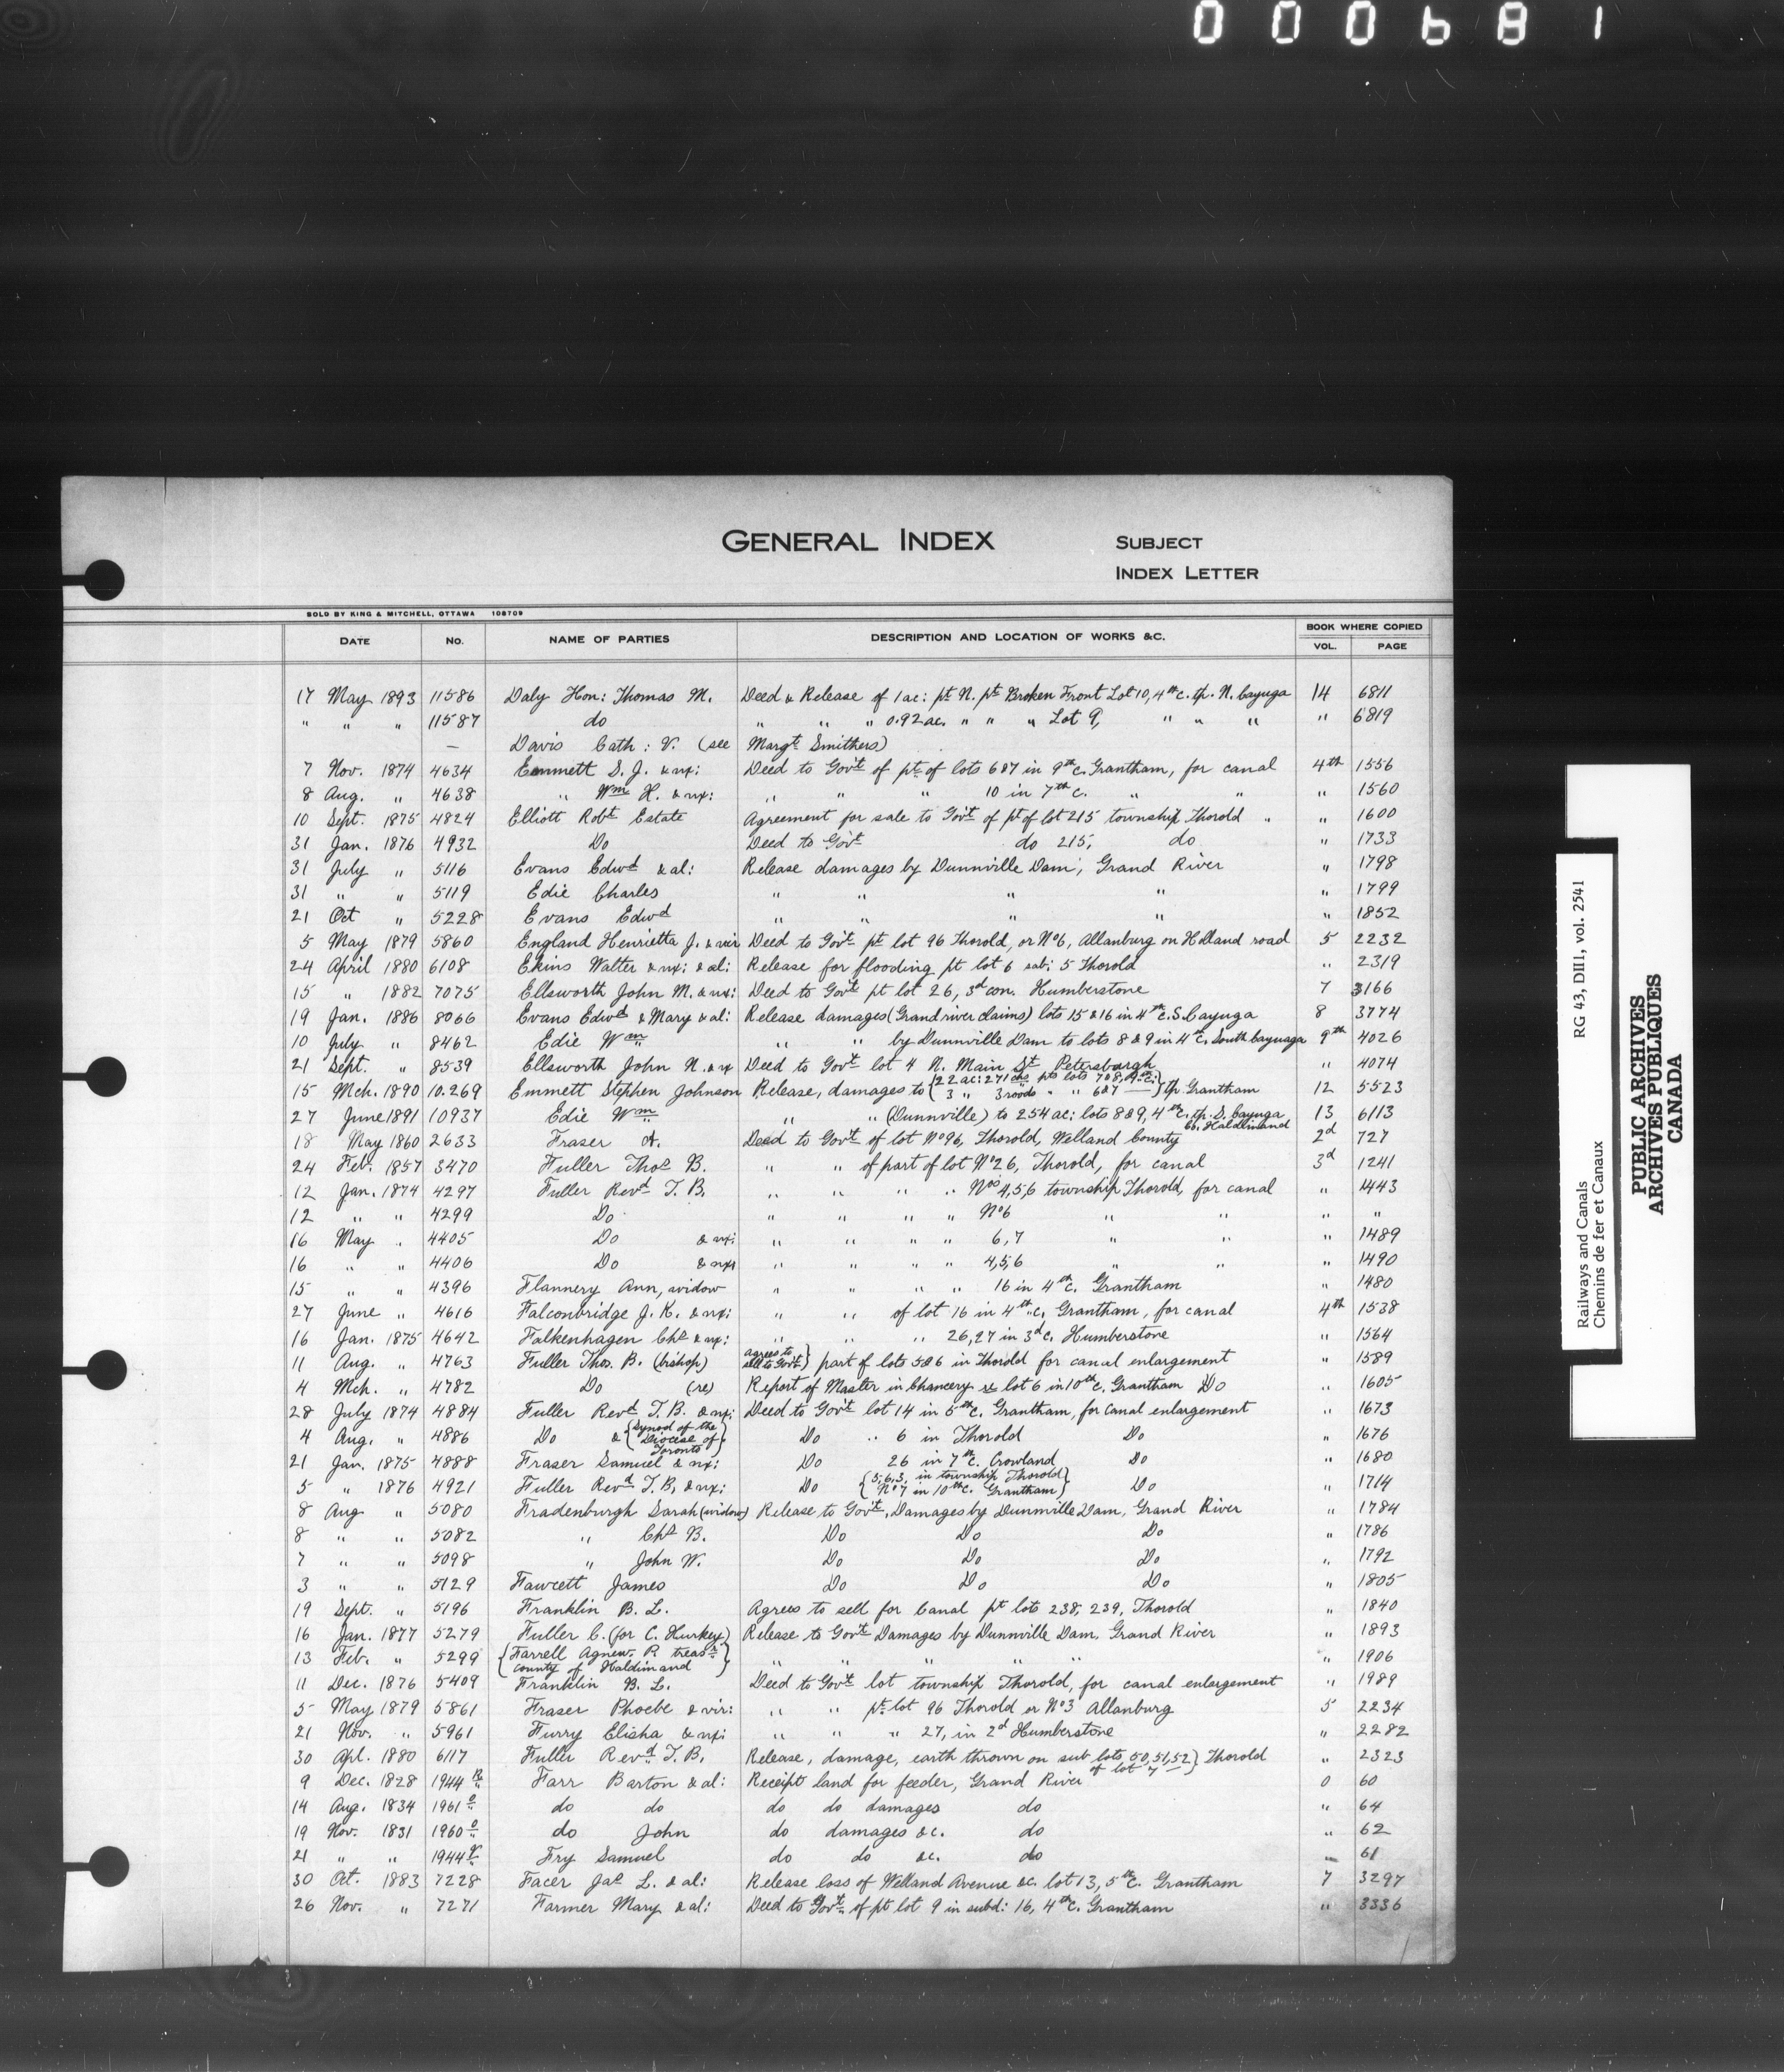 000681
GENERAL INDEX
SUBJECT
INDEX LETTER
SOLD BY KING & MITCHELL, OTTAWA 108709
DATE NO. NAME OF PARTIES DESCRIPTION AND LOCATION OF WORKS &C. BOOK WHERE COPIED
VOL. PAGE
17 May 1893 11586 Daly Hon: Thomas M. Deed & Release of 1 ac: pt N. pt Broken Front Lot 10, 4th c. tp. N. Cayuga 14 6811
" " " 11587 do " " " 0.92 ac. " " " Lot 9, " " " " 6819
— Davis Cath: V. (see Margt Smithers)
7 Nov. 1874 4634 Emmett S. J. & ux: Deed to Gov't of pt of lots 6&7 in 9th c. Grantham, for canal 4th 1556
8 Aug. " 4638 " Wm H. & ux: " " " 10 in 7th c. " " " 1560
10 Sept. 1875 4824 Elliott Robt Estate Agreement for sale to Gov't of pt of lot 215 township Thorold " " 1600
31 Jan. 1876 4932 Do Deed to Gov't do 215, do " 1733
31 July " 5116 Evans Edwd & al: Release damages by Dunnville Dam, Grand River " 1798
31 " " 5119 Edie Charles " " " " " 1799
21 Oct " 5228 Evans Edwd " " " " " 1852
5 May 1879 5860 England Henrietta J. & vir Deed to Gov't pt lot 96 Thorold, or No 6, Allanburg on Holland road 5 2232
24 April 1880 6108 Ekins Walter & ux: & al: Release for flooding pt lot 6 sub: 5 Thorold " 2319
15 " 1882 7075 Ellsworth John M. & ux: Deed to Gov't pt lot 26, 3d con. Humberstone 7 3166
19 Jan. 1886 8066 Evans Edwd & Mary & al: Release damages (Grand river claims) lots 15 & 16 in 4th c. S. Cayuga 8 3774
10 July " 8462 Edie Wm " " by Dunnville Dam to lots 8 & 9 in 4th c. South Cayuaga 9th 4026
21 Sept. " 8539 Ellsworth John N. & x Deed to Gov't lot 4 N. Main St Petersburgh " 4074
15 Mch. 1890 10.269 Emmett Stephen Johnson Release, damages to {22 ac: 271 pts lots 7&8, 9th c: 3 " 3 roods " " 6&7 —} tp Grantham 12 5523
27 June 1891 10937 Edie Wm " " (Dunnville) to 254 ac: lots 8&9, 4th c. tp. S. Cayuga, Co. Haldimand 13 6113
18 May 1860 2633 Fraser A. Deed to Gov't of lot No 96, Thorold, Welland County 2d 727
24 Feb. 1857 3470 Fuller Thos B. " " of part of lot No 26, Thorold, for canal 3d 1241
12 Jan. 1874 4297 Fuller Revd T. B. " " " " Nos 4,5,6 township Thorold, for canal " 1443
12 " " 4299 Do " " " " No 6 " " " "
16 May " 4405 Do & ux: " " " " 6,7 " " " 1489
16 " " 4406 Do & ux: " " " " 4,5,6 " " " 1490
15 " " 4396 Flannery Ann, widow " " " " 16 in 4th c. Grantham " 1480
27 June " 4616 Falconbridge J. K. & ux: " " of lot 16 in 4th c. Grantham, for canal 4th 1538
16 Jan. 1875 4642 Falkenhagen Chs & ux: " " " 26,27 in 3d c. Humberstone " 1564
11 Aug. " 4763 Fuller Thos. B. (bishop) agrees to sell to Gov't} part of lots 5&6 in Thorold for canal enlargement " 1589
4 Mch. " 4782 Do (re) Report of Master in Chancery re lot 6 in 10th c. Grantham Do " 1605
28 July 1874 4884 Fuller Revd T. B. & ux: Deed to Gov't lot 14 in 5th c. Grantham, for canal enlargement " 1673
4 Aug. " 4886 Do & {Synod of the Diocese of Toronto} Do " 6 in Thorold Do " 1676
21 Jan. 1875 4888 Fraser Samuel & ux: Do 26 in 7th c. Crowland Do " 1680
5 " 1876 4921 Fuller Revd T. B, & ux: Do {5,6,3, in township Thorold No 7 in 10th c. Grantham} Do " 1714
8 Aug " 5080 Fradenburgh Sarah (widow) Release to Gov't, Damages by Dunnville Dam, Grand River " 1784
8 " " 5082 " Chs B. Do Do Do " 1786
7 " " 5098 " John W. Do Do Do " 1792
3 " " 5129 Fawcett James Do Do Do " 1805
19 Sept. " 5196 Franklin B. L. Agrees to sell for Canal pt lots 238, 239, Thorold " 1840
16 Jan. 1877 5279 Fuller C. (for C. Hurkey) Release to Gov't Damages by Dunnville Dam, Grand River " 1893
13 Feb. " 5299 {Farrell Agnew. P. treasr county of Haldimand} " " " " " 1906
11 Dec. 1876 5409 Franklin B. L. Deed to Gov't lot township Thorold, for canal enlargement " 1989
5 May 1879 5861 Fraser Phoebe & vir: " " pt lot 96 Thorold or No 3 Allanburg 5 2234
21 Nov. " 5961 Furry Elisha & ux: " " " 27, in 2d Humberstone " 2282
30 Apl. 1880 6117 Fuller Revd T. B. Release, damage, earth thrown on sub lots 50,51,52 of lot 7 —} Thorold " 2323
9 Dec. 1828 1944 R Farr Barton & al: Receipt land for feeder, Grand River 0 60
14 Aug. 1834 1961 o do do do do damages do " 64
19 Nov. 1831 1960 o do John do damages &c. do " 62
21 " " 1944 Fry Samuel do do &c. do — 61
30 Oct. 1883 7228 Facer Jas L. & al: Release loss of Welland Avenue &c. lot 13, 5th c. Grantham 7 3297
26 Nov. " 7271 Farmer Mary & al: Deed to Gov't of pt lot 9 in subd: 16, 4th c. Grantham " 3336
Railways and Canals RG 43, DIII, vol. 2541
Chemins de fer et Canaux
PUBLIC ARCHIVES
ARCHIVES PUBLIQUES
CANADA